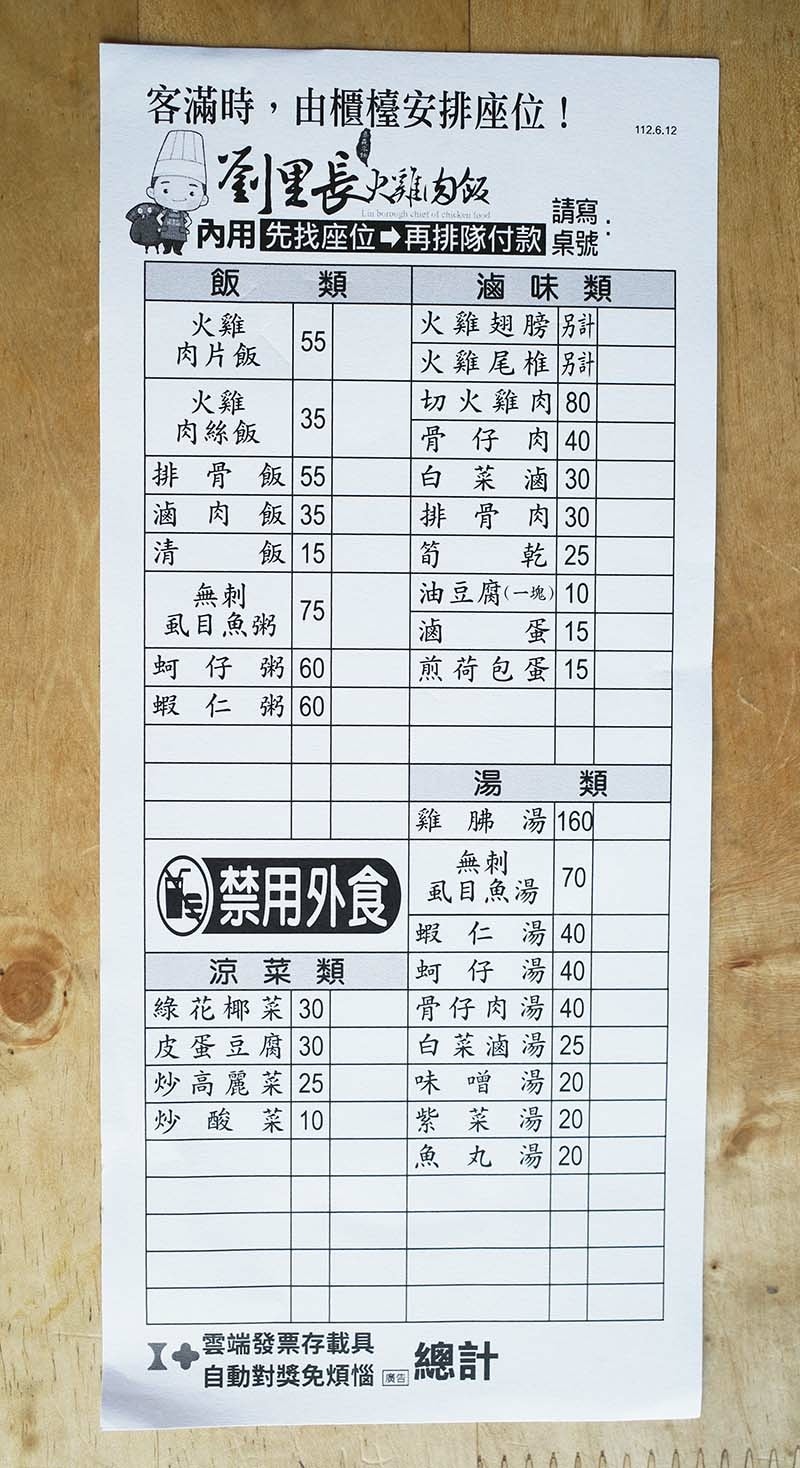 客滿時，由櫃檯安排座位！
112.6.12
劉里長火雞肉飯
Liu borough chief of chicken food
請寫桌號：
內用 先找座位➡再排隊付款
飯類
火雞肉片飯 55
火雞肉絲飯 35
排骨飯 55
滷肉飯 35
清飯 15
無刺虱目魚粥 75
蚵仔粥 60
蝦仁粥 60
禁用外食
涼菜類
綠花椰菜 30
皮蛋豆腐 30
炒高麗菜 25
炒酸菜 10
滷味類
火雞翅膀 另計
火雞尾椎 另計
切火雞肉 80
骨仔肉 40
白菜滷 30
排骨肉 30
筍乾 25
油豆腐(一塊) 10
滷蛋 15
煎荷包蛋 15
湯類
雞胇湯 160
無刺虱目魚湯 70
蝦仁湯 40
蚵仔湯 40
骨仔肉湯 40
白菜滷湯 25
味噌湯 20
紫菜湯 20
魚丸湯 20
雲端發票存載具
自動對獎免煩惱 廣告
總計